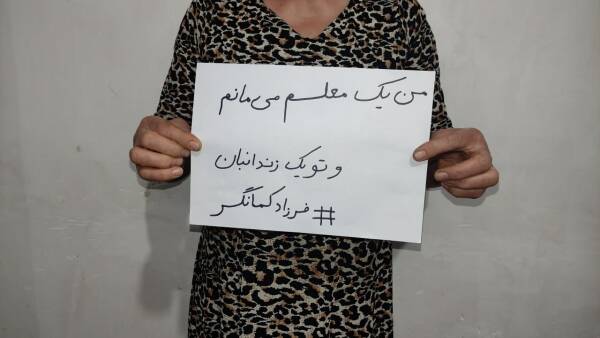 من یک معلم می‌مانم
و تو یک زندانبان
#فرزادکمانگر